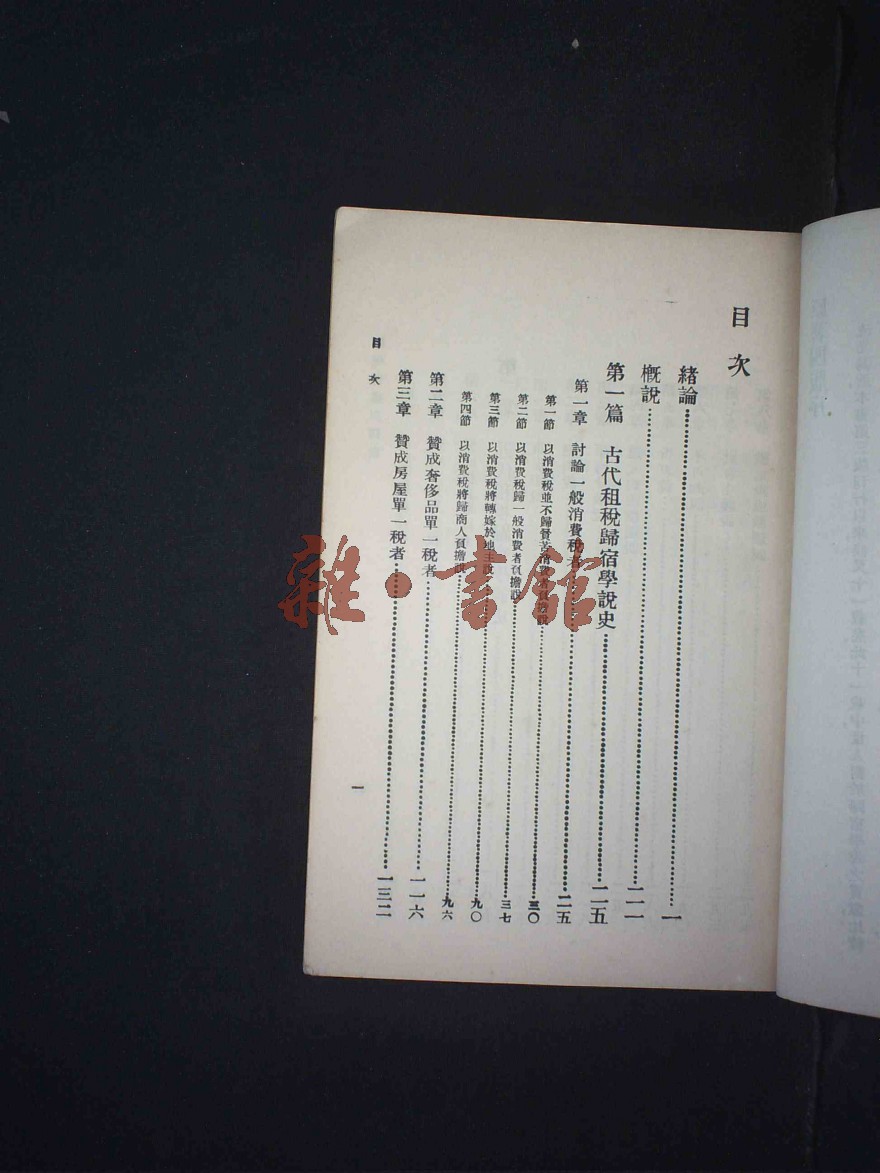 目次
緒論⋯⋯一
概說⋯⋯二一
第一篇 古代租稅歸宿學說史⋯⋯二五
第一章 討論一般消費稅者⋯⋯二五
第一節 以消費稅並不歸貧苦消費者負擔說⋯⋯三〇
第二節 以消費稅歸一般消費者負擔說⋯⋯三七
第三節 以消費稅將轉嫁於地主說⋯⋯九〇
第四節 以消費稅將歸商人負擔說⋯⋯九六
第二章 贊成奢侈品單一稅者⋯⋯一一六
第三章 贊成房屋單一稅者⋯⋯一三二
目次
一
雜·書館